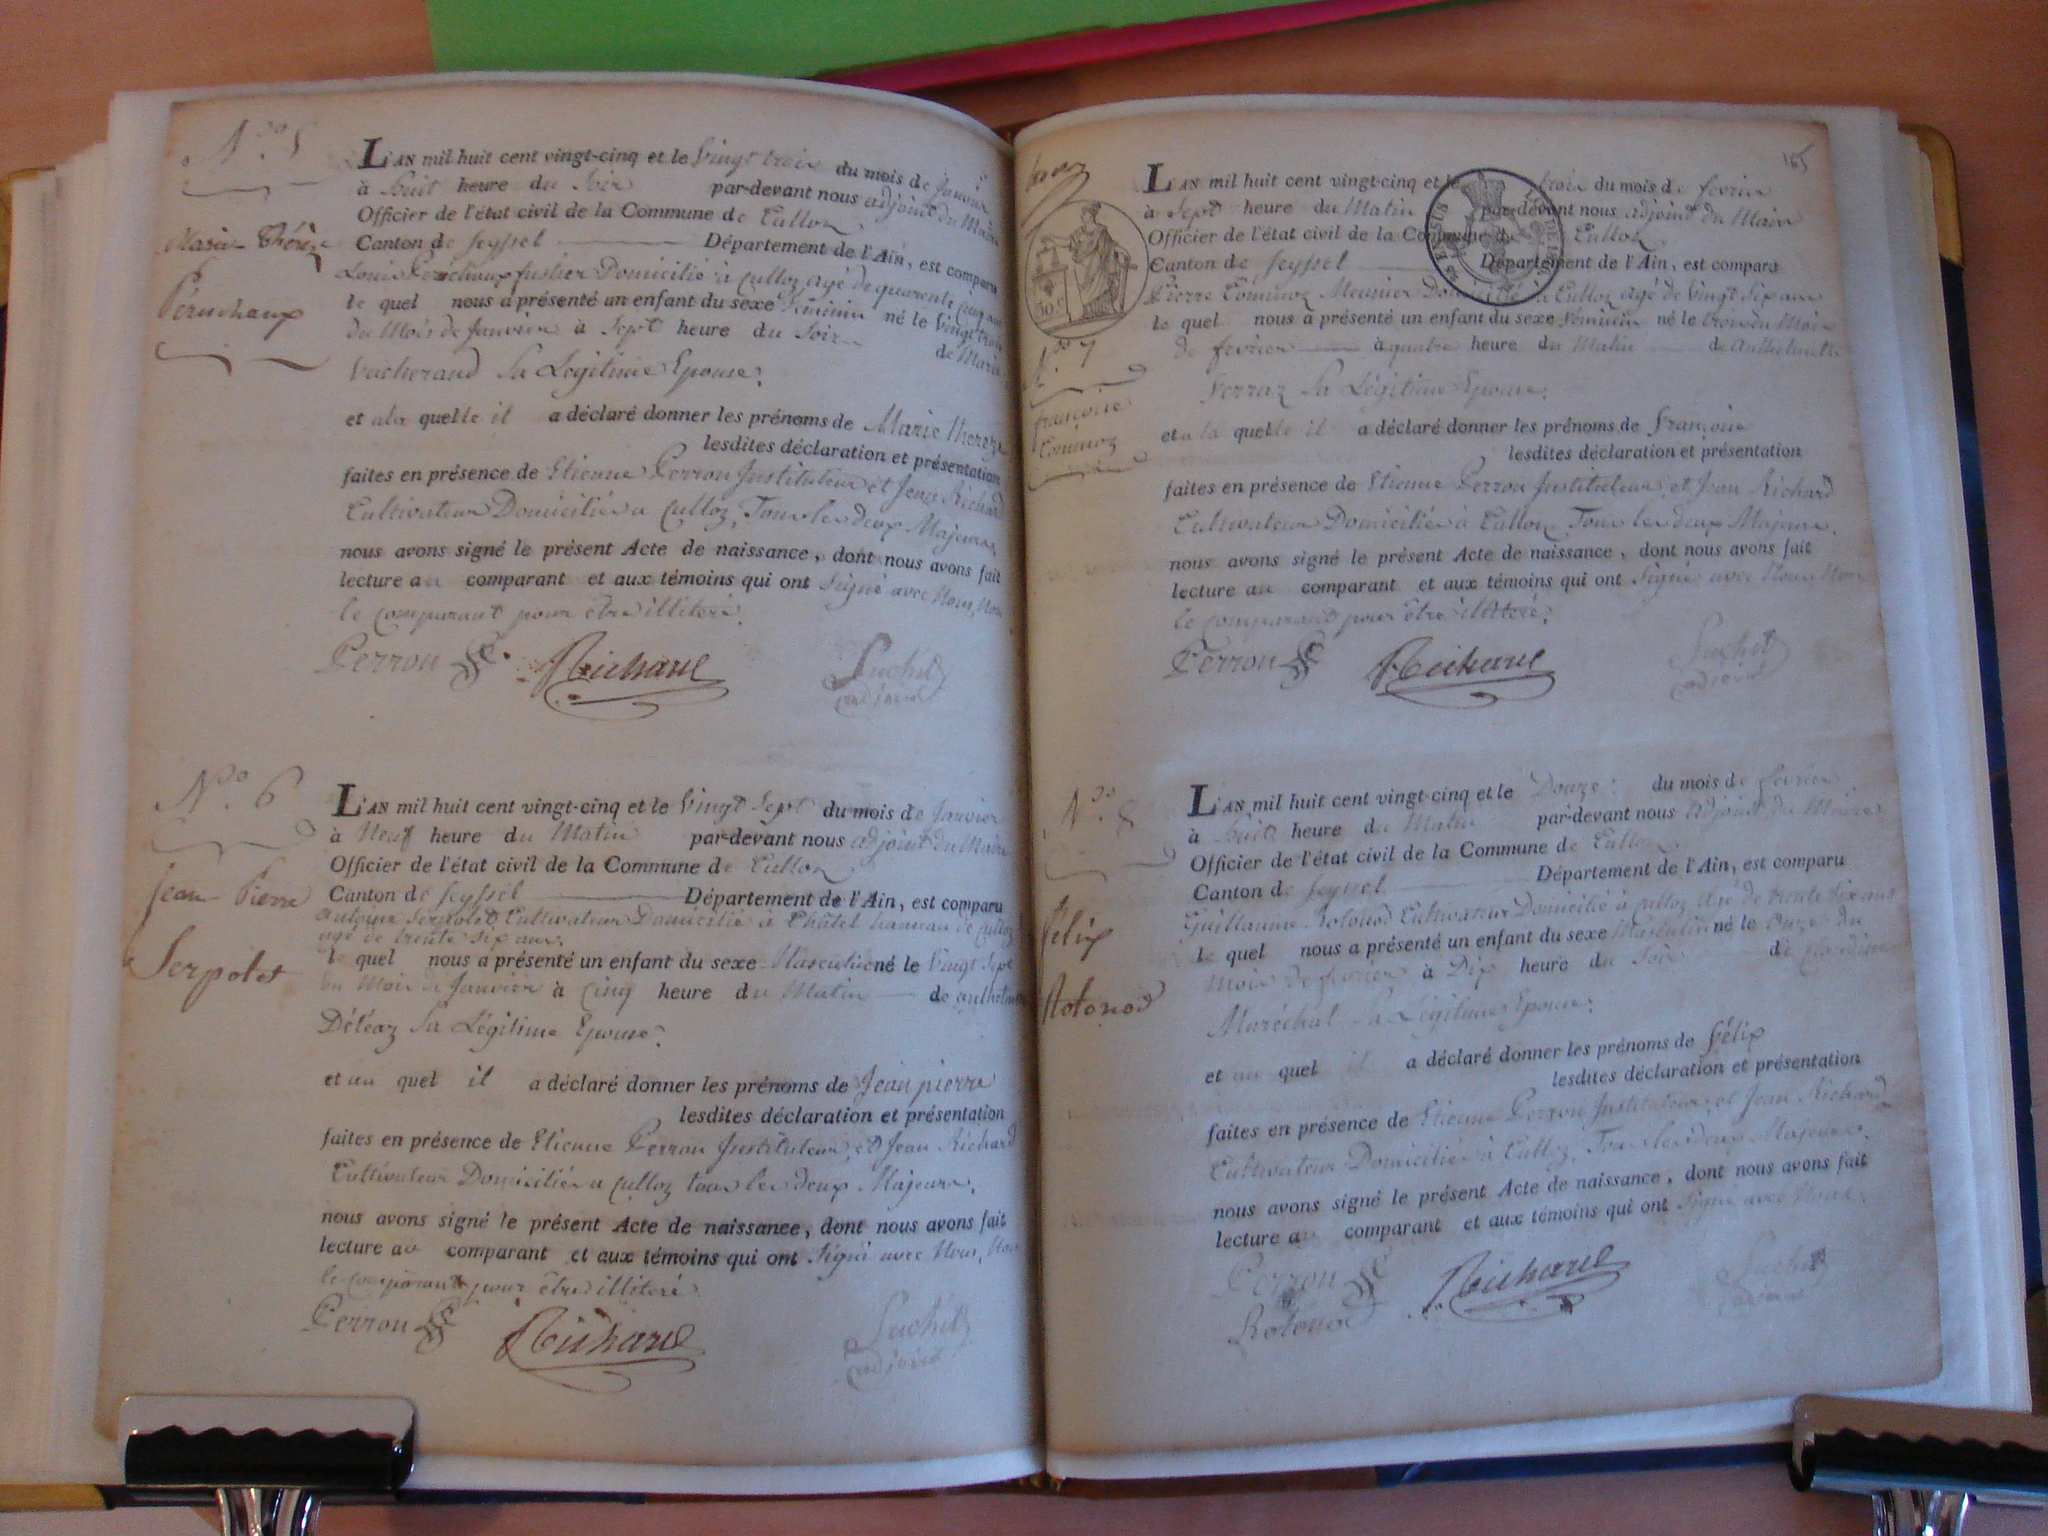 N.ro 5
Marie Thérèze
Peruchaux
L'AN mil huit cent vingt-cinq et le Vingt trois du mois de Janvier
à huit heure du Soir par-devant nous adjoint du Maire
Officier de l'état civil de la Commune de Culloz
Canton de Seyssel Département de l'Ain, est comparu
Louis fustier Domicilié à Culloz agé de quarente cinq ans
le quel nous a présenté un enfant du sexe féminin né le Vingt trois
du Mois de Janvier à Sept heure du Soir de Marie
Vacherand Sa Légitime Epouse.
et a la quelle il a déclaré donner les prénoms de Marie thereze
lesdites déclaration et présentation
faites en présence de Etienne Perron Instituteur et Jean Richard
Cultivateur Domiciliés a Culloz, Tous les deux Majeurs
nous avons signé le présent Acte de naissance, dont nous avons fait
lecture au comparant et aux témoins qui ont Signé avec Nous, Non
le comparant pour être illiteré.
Perron Richard Suchet
adjoint
N.o 6
Jean Pierre
Serpolet
L'AN mil huit cent vingt-cinq et le Vingt Sept du mois de Janvier
à Neuf heure du Matin par-devant nous adjoint du Maire
Officier de l'état civil de la Commune de Culloz
Canton de Seyssel Département de l'Ain, est comparu
antoine Serpolet Cultivateur Domicilié à Châtel hameau de Culloz
agé de trente six ans.
le quel nous a présenté un enfant du sexe Masculin né le Vingt Sept
du Mois de Janvier à Cinq heure du Matin de anthelmette
Déléaz Sa Légitime Epouse.
et au quel il a déclaré donner les prénoms de Jean pierre
lesdites déclaration et présentation
faites en présence de Etienne Perron Instituteur, et Jean Richard
Cultivateur Domiciliés a Culloz tous les deux Majeurs.
nous avons signé le présent Acte de naissance, dont nous avons fait
lecture au comparant et aux témoins qui ont Signé avec Nous, Non
le comparant pour être illiteré
Perron Richard Suchet
adjoint
165
30 c
N.ro 7
françoise
Commoz
L'AN mil huit cent vingt-cinq et le trois du mois de fevrier
à Sept heure du Matin par-devant nous adjoint du Maire
Officier de l'état civil de la Commune de Culloz
Canton de Seyssel Département de l'Ain, est comparu
Pierre Commoz Meunier Domicilié à Culloz agé de Vingt Six ans
le quel nous a présenté un enfant du sexe féminin né le trois du Mois
de fevrier à quatre heure du Matin de Anthelmette
Ferraz Sa Légitime Epouse.
et a la quelle il a déclaré donner les prénoms de françoise
lesdites déclaration et présentation
faites en présence de Etienne Perron Instituteur, et Jean Richard
Cultivateur Domiciliés à Culloz Tous les deux Majeurs.
nous avons signé le présent Acte de naissance, dont nous avons fait
lecture au comparant et aux témoins qui ont Signé avec Nous Non
le comparant pour être illiteré.
Perron Richard Suchet
adjoint
N.ro 8
félix
Rotonod
L'AN mil huit cent vingt-cinq et le Douze du mois de fevrier
à huit heure du Matin par-devant nous adjoint du Maire
Officier de l'état civil de la Commune de Culloz
Canton de Seyssel Département de l'Ain, est comparu
Guillaume Rotonod Cultivateur Domicilié à Culloz Agé de trente six ans
le quel nous a présenté un enfant du sexe Masculin né le Onze du
Mois de fevrier à Dix heure du Soir de Claudine
Maréchal Sa Légitime Epouse.
et au quel il a déclaré donner les prénoms de félix
lesdites déclaration et présentation
faites en présence de Etienne Perron Instituteur, et Jean Richard
Cultivateur Domiciliés à Culloz, Tous les deux Majeurs.
nous avons signé le présent Acte de naissance, dont nous avons fait
lecture au comparant et aux témoins qui ont Signé avec Nous.
Perron Richard Suchet
Rotonod adjoint